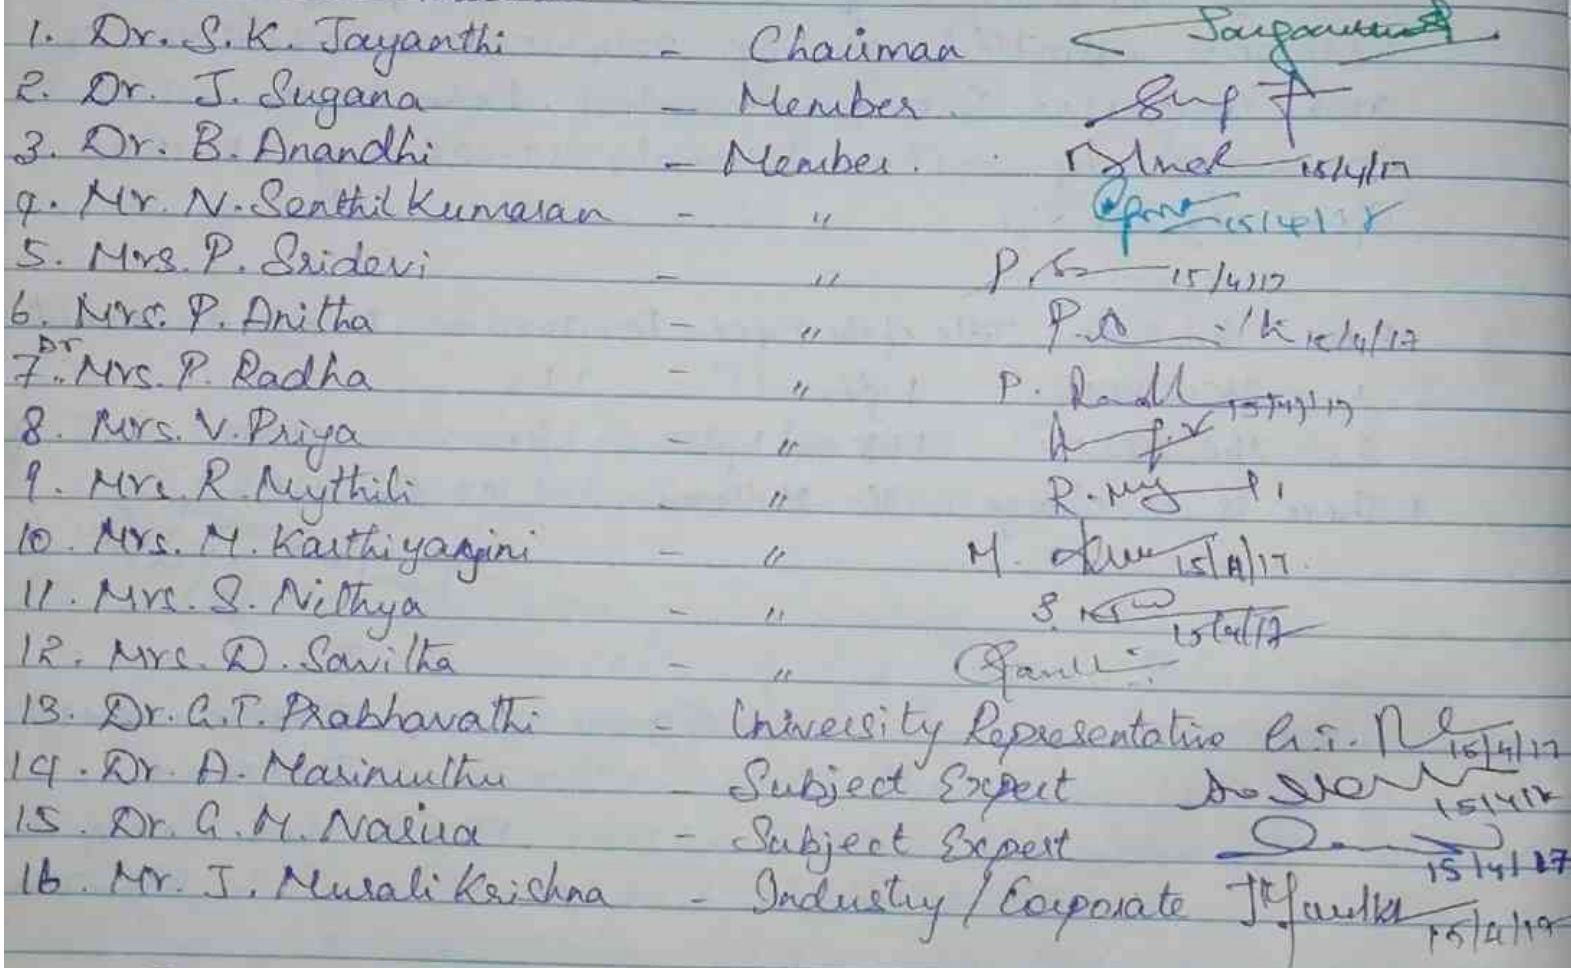 1. Dr. S.K. Jayanthi - Chairman
2. Dr. J. Sugana - Member
3. Dr. B. Anandhi - Member. 15/4/17
4. Mr. N. Senthil Kumaran - " 15/4/17
5. Mrs. P. Sridevi - " P. 15/4/17
6. Mrs. P. Anitha - " P. 15/4/17
7. Dr Mrs. P. Radha - " P. Radh 15/4/17
8. Mrs. V. Priya - "
9. Mrs. R. Mythili - " R. My
10. Mrs. M. Karthiyayini - " M. 15/4/17.
11. Mrs. S. Nithya - " S. 15/4/17
12. Mrs. D. Savitha - "
13. Dr. G.T. Prabhavathi - University Representative G.T. 15/4/17
14. Dr. A. Marimuthu - Subject Expert 15/4/17
15. Dr. G.M. Nasira - Subject Expert 15/4/17
16. Mr. J. Murali Krishna - Industry / Corporate 15/4/17